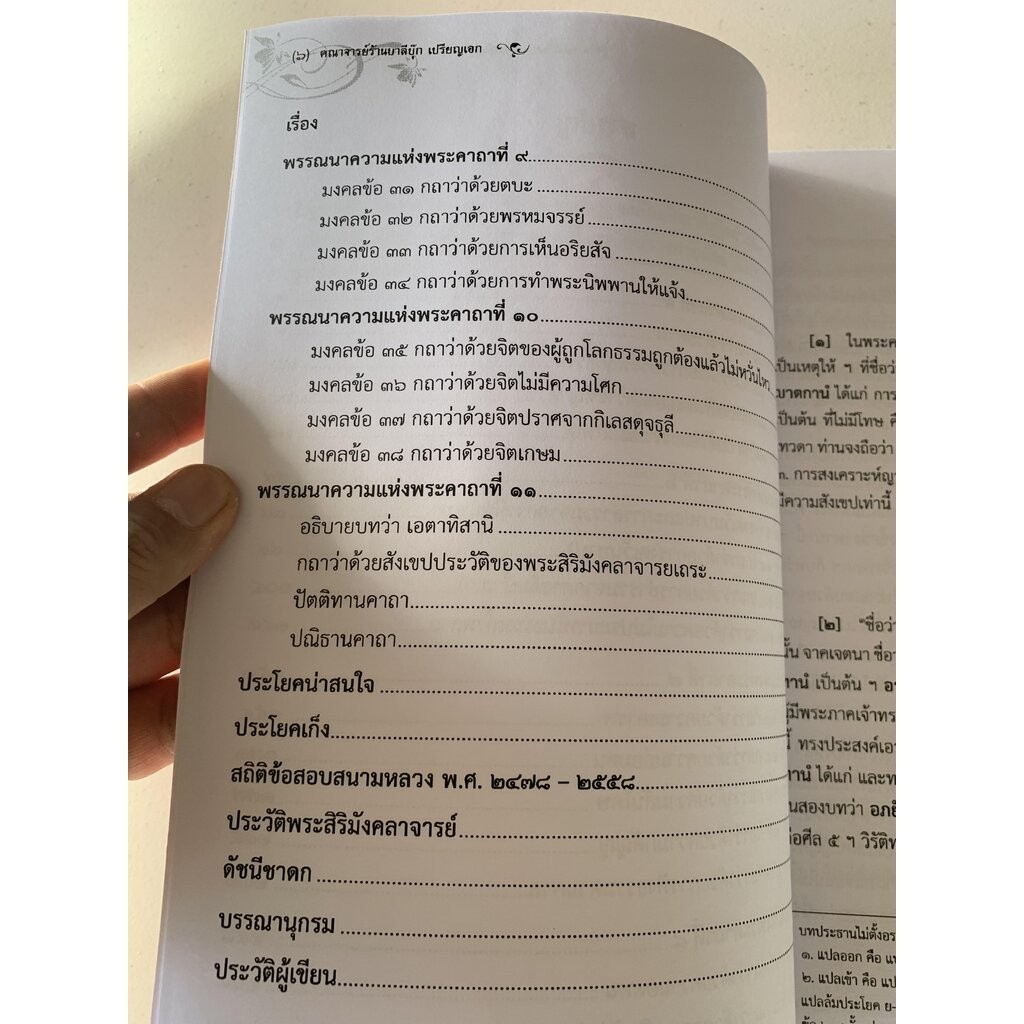 (๖) คณาจารย์ร้านบาลีบุ๊ก เปรียญเอก
เรื่อง
พรรณนาความแห่งพระคาถาที่ ๙
มงคลข้อ ๓๑ กถาว่าด้วยตบะ
มงคลข้อ ๓๒ กถาว่าด้วยพรหมจรรย์
มงคลข้อ ๓๓ กถาว่าด้วยการเห็นอริยสัจ
มงคลข้อ ๓๔ กถาว่าด้วยการทำพระนิพพานให้แจ้ง
พรรณนาความแห่งพระคาถาที่ ๑๐
มงคลข้อ ๓๕ กถาว่าด้วยจิตของผู้ถูกโลกธรรมถูกต้องแล้วไม่หวั่นไหว
มงคลข้อ ๓๖ กถาว่าด้วยจิตไม่มีความโศก
มงคลข้อ ๓๗ กถาว่าด้วยจิตปราศจากกิเลสดุจธุลี
มงคลข้อ ๓๘ กถาว่าด้วยจิตเกษม
พรรณนาความแห่งพระคาถาที่ ๑๑
อธิบายบทว่า เอตาทิสานิ
กถาว่าด้วยสังเขปประวัติของพระสิริมังคลาจารยเถระ
ปัตติทานคาถา
ปณิธานคาถา
ประโยคน่าสนใจ
ประโยคเก็ง
สถิติข้อสอบสนามหลวง พ.ศ. ๒๔๗๘ – ๒๕๕๘
ประวัติพระสิริมังคลาจารย์
ดัชนีชาดก
บรรณานุกรม
ประวัติผู้เขียน
[๑] ในพระค
เป็นเหตุให้ ฯ ที่ชื่อว่
มาตกานํ ได้แก่ การ
เป็นต้น ที่ไม่มีโทษ
ทวดา ท่านจงถือว่า
๓. การสงเคราะห์ญา
มีความสังเขปเท่านี้
[๒] "ชื่อว่
นั้น จาคเจตนา ชื่อ
ทานํ เป็นต้น ฯ
ผู้มีพระภาคเจ้าทร
นี้ ทรงประสงค์เอา
ทานํ ได้แก่ และท
นสองบทว่า อภย
ศีล ๕ ฯ วิรัติ
บทประธานไม่ตั้งอร
๑. แปลออก คือ แป
๒. แปลเข้า คือ แป
แปลล้มประโยค ย-